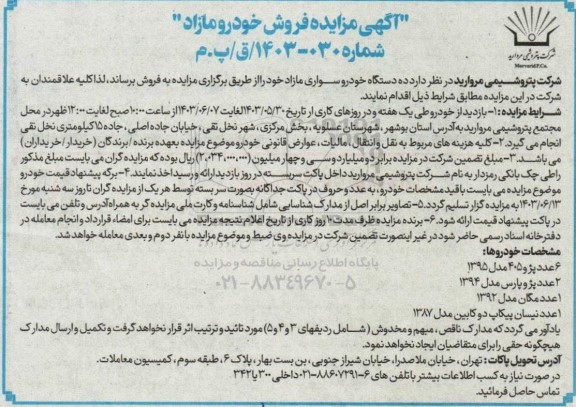 "آگهی مزایده فروش خودرو مازاد"
شماره ۰۳۰-۱۴۰۳/ق/پ.م
شرکت پتروشیمی مروارید
Morvarid P.Co.
شرکت پتروشیمی مروارید در نظر دارد ده دستگاه خودرو سواری مازاد خود را از طریق برگزاری مزایده به فروش برساند، لذا کلیه علاقمندان به
شرکت در این مزایده مطابق شرایط ذیل اقدام نمایند.
شرایط مزایده: ۱- بازدید از خودرو طی یک هفته و در روزهای کاری از تاریخ ۱۴۰۳/۰۵/۳۰ لغایت ۱۴۰۳/۰۶/۰۷ از ساعت ۱۰:۰۰ صبح لغایت ۱۲:۰۰ ظهر در محل
مجتمع پتروشیمی مروارید به آدرس استان بوشهر، شهرستان عسلویه، بخش مرکزی، شهر نخل تقی، خیابان جاده اصلی، جاده ۱۵ کیلومتری نخل تقی
انجام می گیرد. ۲- کلیه هزینه های مربوط به نقل و انتقال، مالیات، عوارض قانونی خودرو موضوع مزایده بعهده برنده / برندگان (خریدار / خریداران)
می باشد. ۳- مبلغ تضمین شرکت در مزایده برابر دو میلیارد و سی و چهار میلیون (۲،۰۳۴،۰۰۰،۰۰۰) ریال بوده که مزایده گران می بایست مبلغ مذکور
را طی چک بانکی رمزدار به نام شرکت پتروشیمی مروارید داخل پاکت سربسته در روز بازدید ارائه و رسید اخذ نمایند. ۴- برگه پیشنهاد قیمت خودرو
موضوع مزایده می بایست با قید مشخصات خودرو، به عدد و حروف در پاکت جداگانه بصورت سر بسته توسط هر یک از مزایده گران تا روز سه شنبه مورخ
۱۴۰۳/۰۶/۱۳ به مزایده گزار تسلیم گردد. ۵- تصاویر برابر اصل از مدارک شناسایی شامل شناسنامه و کارت ملی مزایده گر به همراه آدرس و تلفن می بایست
در پاکت پیشنهاد قیمت ارائه شود. ۶- برنده مزایده ظرف مدت ۱۰ روز کاری از تاریخ اعلام نتیجه مزایده می بایست برای امضاء قرارداد و انجام معامله در
دفترخانه اسناد رسمی حاضر شود در غیر اینصورت تضمین شرکت در مزایده وی ضبط و موضوع مزایده با نفر دوم و بعدی معامله خواهد شد.
مشخصات خودروها:
۶ عدد پژو ۴۰۵ مدل ۱۳۹۵
۲ عدد پژو پارس مدل ۱۳۹۴
۱ عدد مگان مدل ۱۳۹۲
۱ عدد نیسان پیکاپ دو کابین مدل ۱۳۸۷
پایگاه اطلاع رسانی مناقصه و مزایده
۰۲۱-۸۸۳۴۹۶۷۰-۵
یادآور می گردد که مدارک ناقص، مبهم و مخدوش (شامل ردیفهای ۳ و ۴ و ۵) مورد تائید و ترتیب اثر قرار نخواهد گرفت و تکمیل و ارسال مدارک
هیچگونه حقی را برای متقاضیان ایجاد نخواهد نمود.
آدرس تحویل پاکات: تهران، خیابان ملاصدرا، خیابان شیراز جنوبی، بن بست بهار، پلاک ۶، طبقه سوم، کمیسیون معاملات.
در صورت نیاز به کسب اطلاعات بیشتر با تلفن های ۶-۸۸۶۰۷۲۹۱-۰۲۱ داخلی ۳۰۰ یا ۳۴۲
تماس حاصل فرمائید.